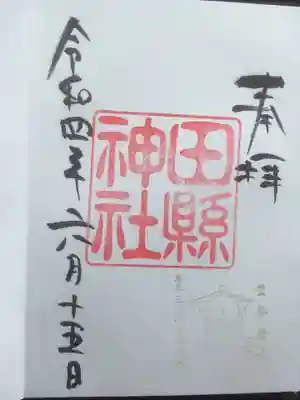 奉拝
田縣
神社
令和四年六月十五日